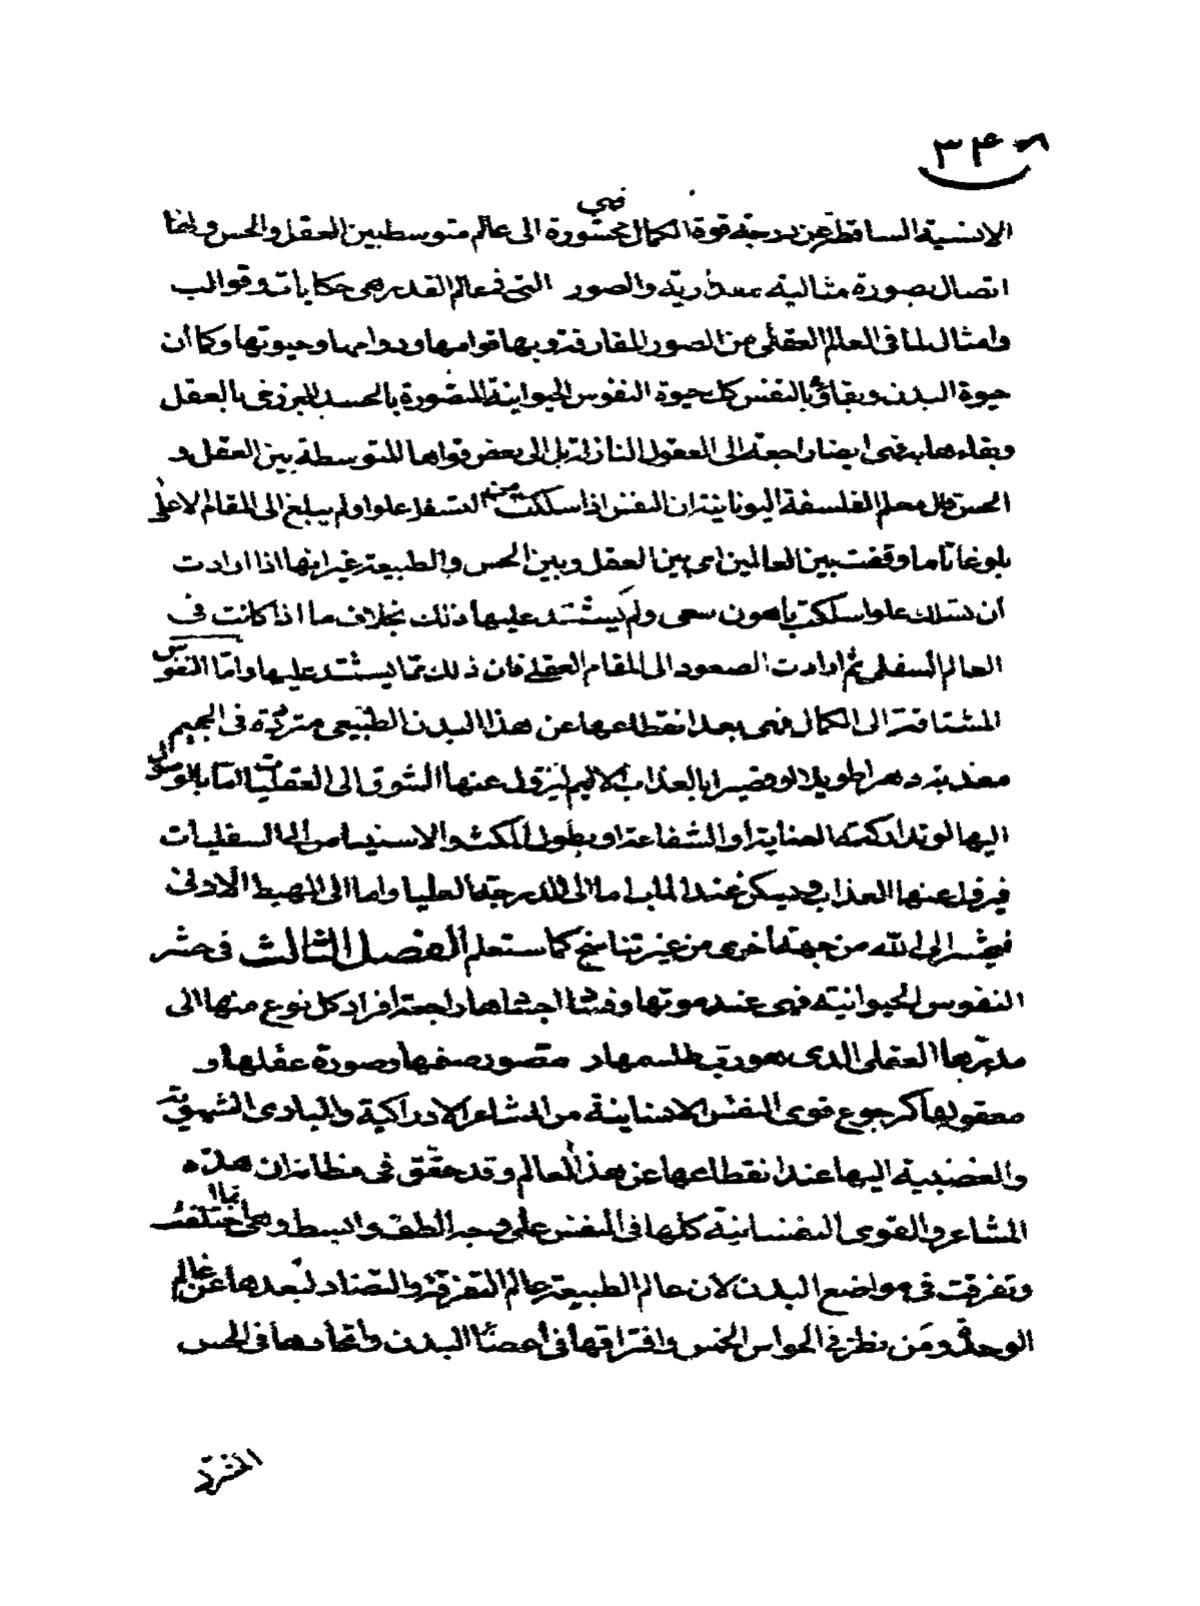 ٣٤٨
الانسية الساقطة عن درجة قوة الكمال فهي محشورة الى عالم متوسط بين العقل والحس ولها
اتصال بصورة مثالية مقدارية والصور التى فى عالم القدر هى حكايات وقوالب
وامثال لما فى العالم العقلى من الصور المفارقة وبها قوامها ودوامها وحيوتها وكما أن
حيوة البدن وبقاؤه بالنفس كل حيوة النفوس الحيوانية المتصورة بالجسد البرزخى بالعقل
وبقاءها به فهى ايضا راجعة الى العقول النازلة بل الى بعض قواها المتوسطة بين العقل و
الحس قال معلم الفلسفة اليونانية ان النفس اذا سلكت من السفل علوا ولم يبلغ الى المقام الاعلى
بلوغا تاما وقفت بين العالمين اى بين العقل وبين الحس والطبيعة غير انها اذا ارادت
أن تسلك علوا سلكت بأهون سعى ولم يشتد عليها ذلك بخلاف ما اذا كانت فى
العالم السفلى ثم ارادت الصعود الى المقام العقلى فان ذلك مما يشتد عليها واما النفوس
المشتاقة الى الكمال فهى بعد انقطاعها عن هذا البدن الطبيعى مترددة فى الجحيم
معذبة دهرا طويلا او قصيرا بالعذاب الاليم ثم يزول عنها الشوق الى العقليات اما بالوصول
اليها لو تداركته العناية او الشفاعة او بطول المكث والاستيناس الى السفليات
فيزول عنها العذاب ويسكن عند الماب اما الى الدرجة العليا واما الى المهبط الادنى
فيحشر الى الله من جهة اخرى من غير تناسخ كما ستعلم الفصل الثالث فى حشر
النفوس الحيوانية فهى عند موتها وفساد اجسادها راجعة افراد كل نوع منها الى
مدبرها العقلى الذى هو رب طلسمها و متصور صنمها وصورة عقلها و
معقولها كرجوع قوى النفس الانسانية من المشاعر الادراكية والمبادى الشهوية
والغضبية اليها عند انقطاعها عن هذا العالم وقد حقق فى مظانه ان هذه
المشاعر والقوى النفسانية كلها فى النفس على وجه الطف وابسط وهى انما اختلفت
وتفرقت فى مواضع البدن لان عالم الطبيعة عالم التفرقة والتضاد لبعدها عن عالم
الوحدة ومن نظر فى الحواس الخمس وافتراقها فى أعضا البدن واتحادها فى الحس
المشترك